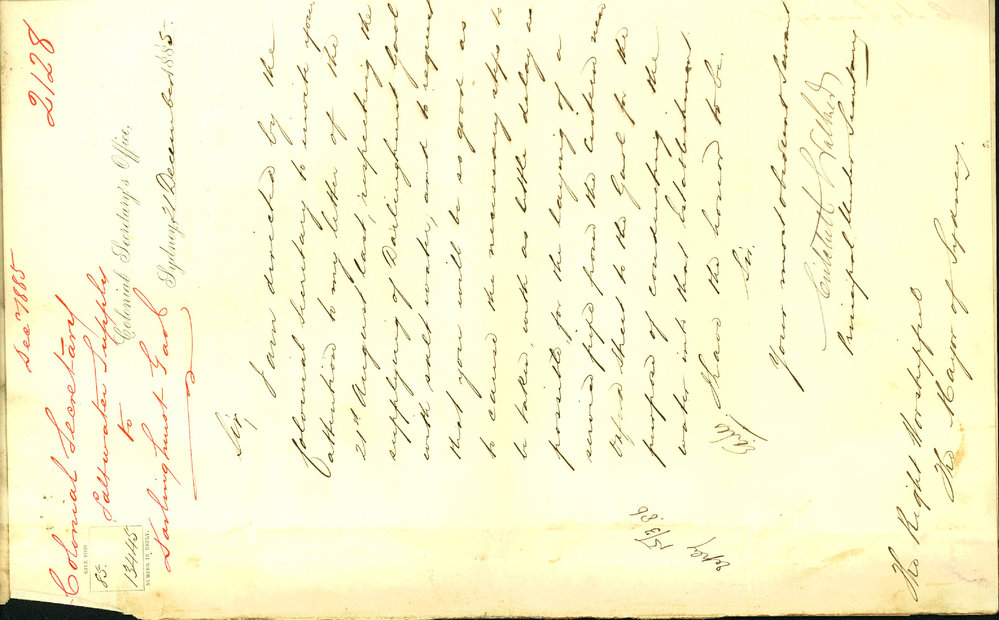 2128
Dec 1885
Colonial Secretary
Saltwater Supply
to
Darlinghurst Gaol
GIVE THIS
85.
13445
NUMBER IN REPLY.
Colonial Secretary's Office,
Sydney, 31 December 1885.
Sir,
I am directed by the
Colonial Secretary to invite your
attention to my letter of the
21st August last, respecting the
supplying of Darlinghurst Gaol
with salt water, and to request
that you will be so good as
to cause the necessary steps to
be taken, with as little delay as
possible, for the laying of a
service pipe from the
street to the Gaol for the
purpose of conducting the
water into that Establishment.
I have the honor to be,
Sir,
Your most obedient servant
Critchett Walker
Principal Under Secretary
reply 15/3/86
The Right Worshipful
The Mayor of Sydney.